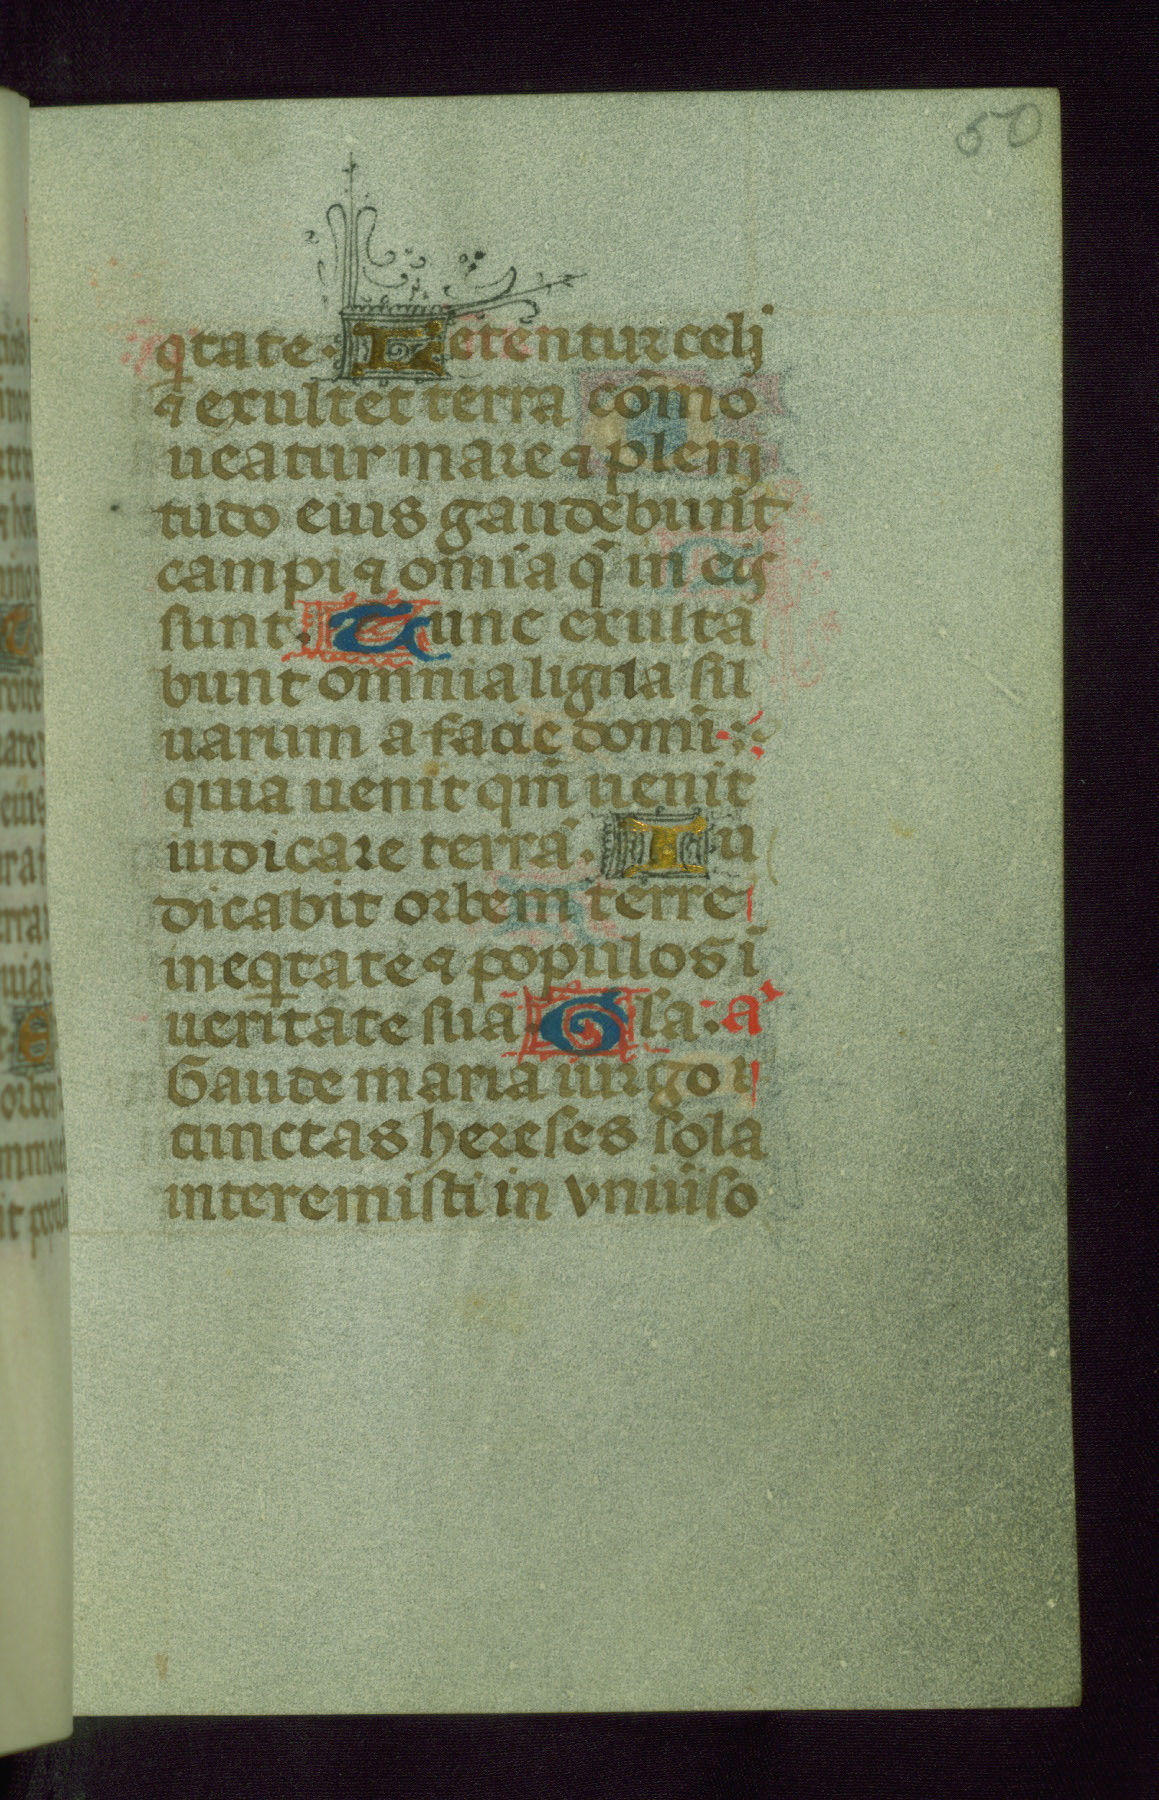 50
qͥtate. Letentur celi
⁊ exultet terra cōmo
ueatur mare ⁊ pleni
tudo eius gaudebunt
campi ⁊ omīa q̄ in eis
sunt. Tunc exulta
bunt omnia ligna sil
uarum a facie domī
quia uenit qm̄ uenit
iudicare terrā. Iu
dicabit orbem terre
in eqͥtate ⁊ populos ī
ueritate sua. Gl̄a. a
Gaude maria uirgo
cunctas hereses sola
interemisti in vniūso